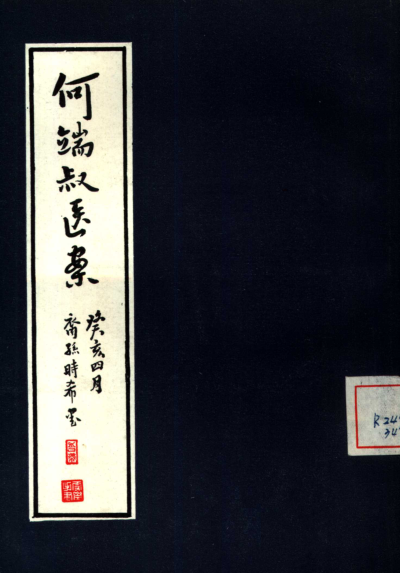 何端叔医案
癸亥四月
裔孫時希